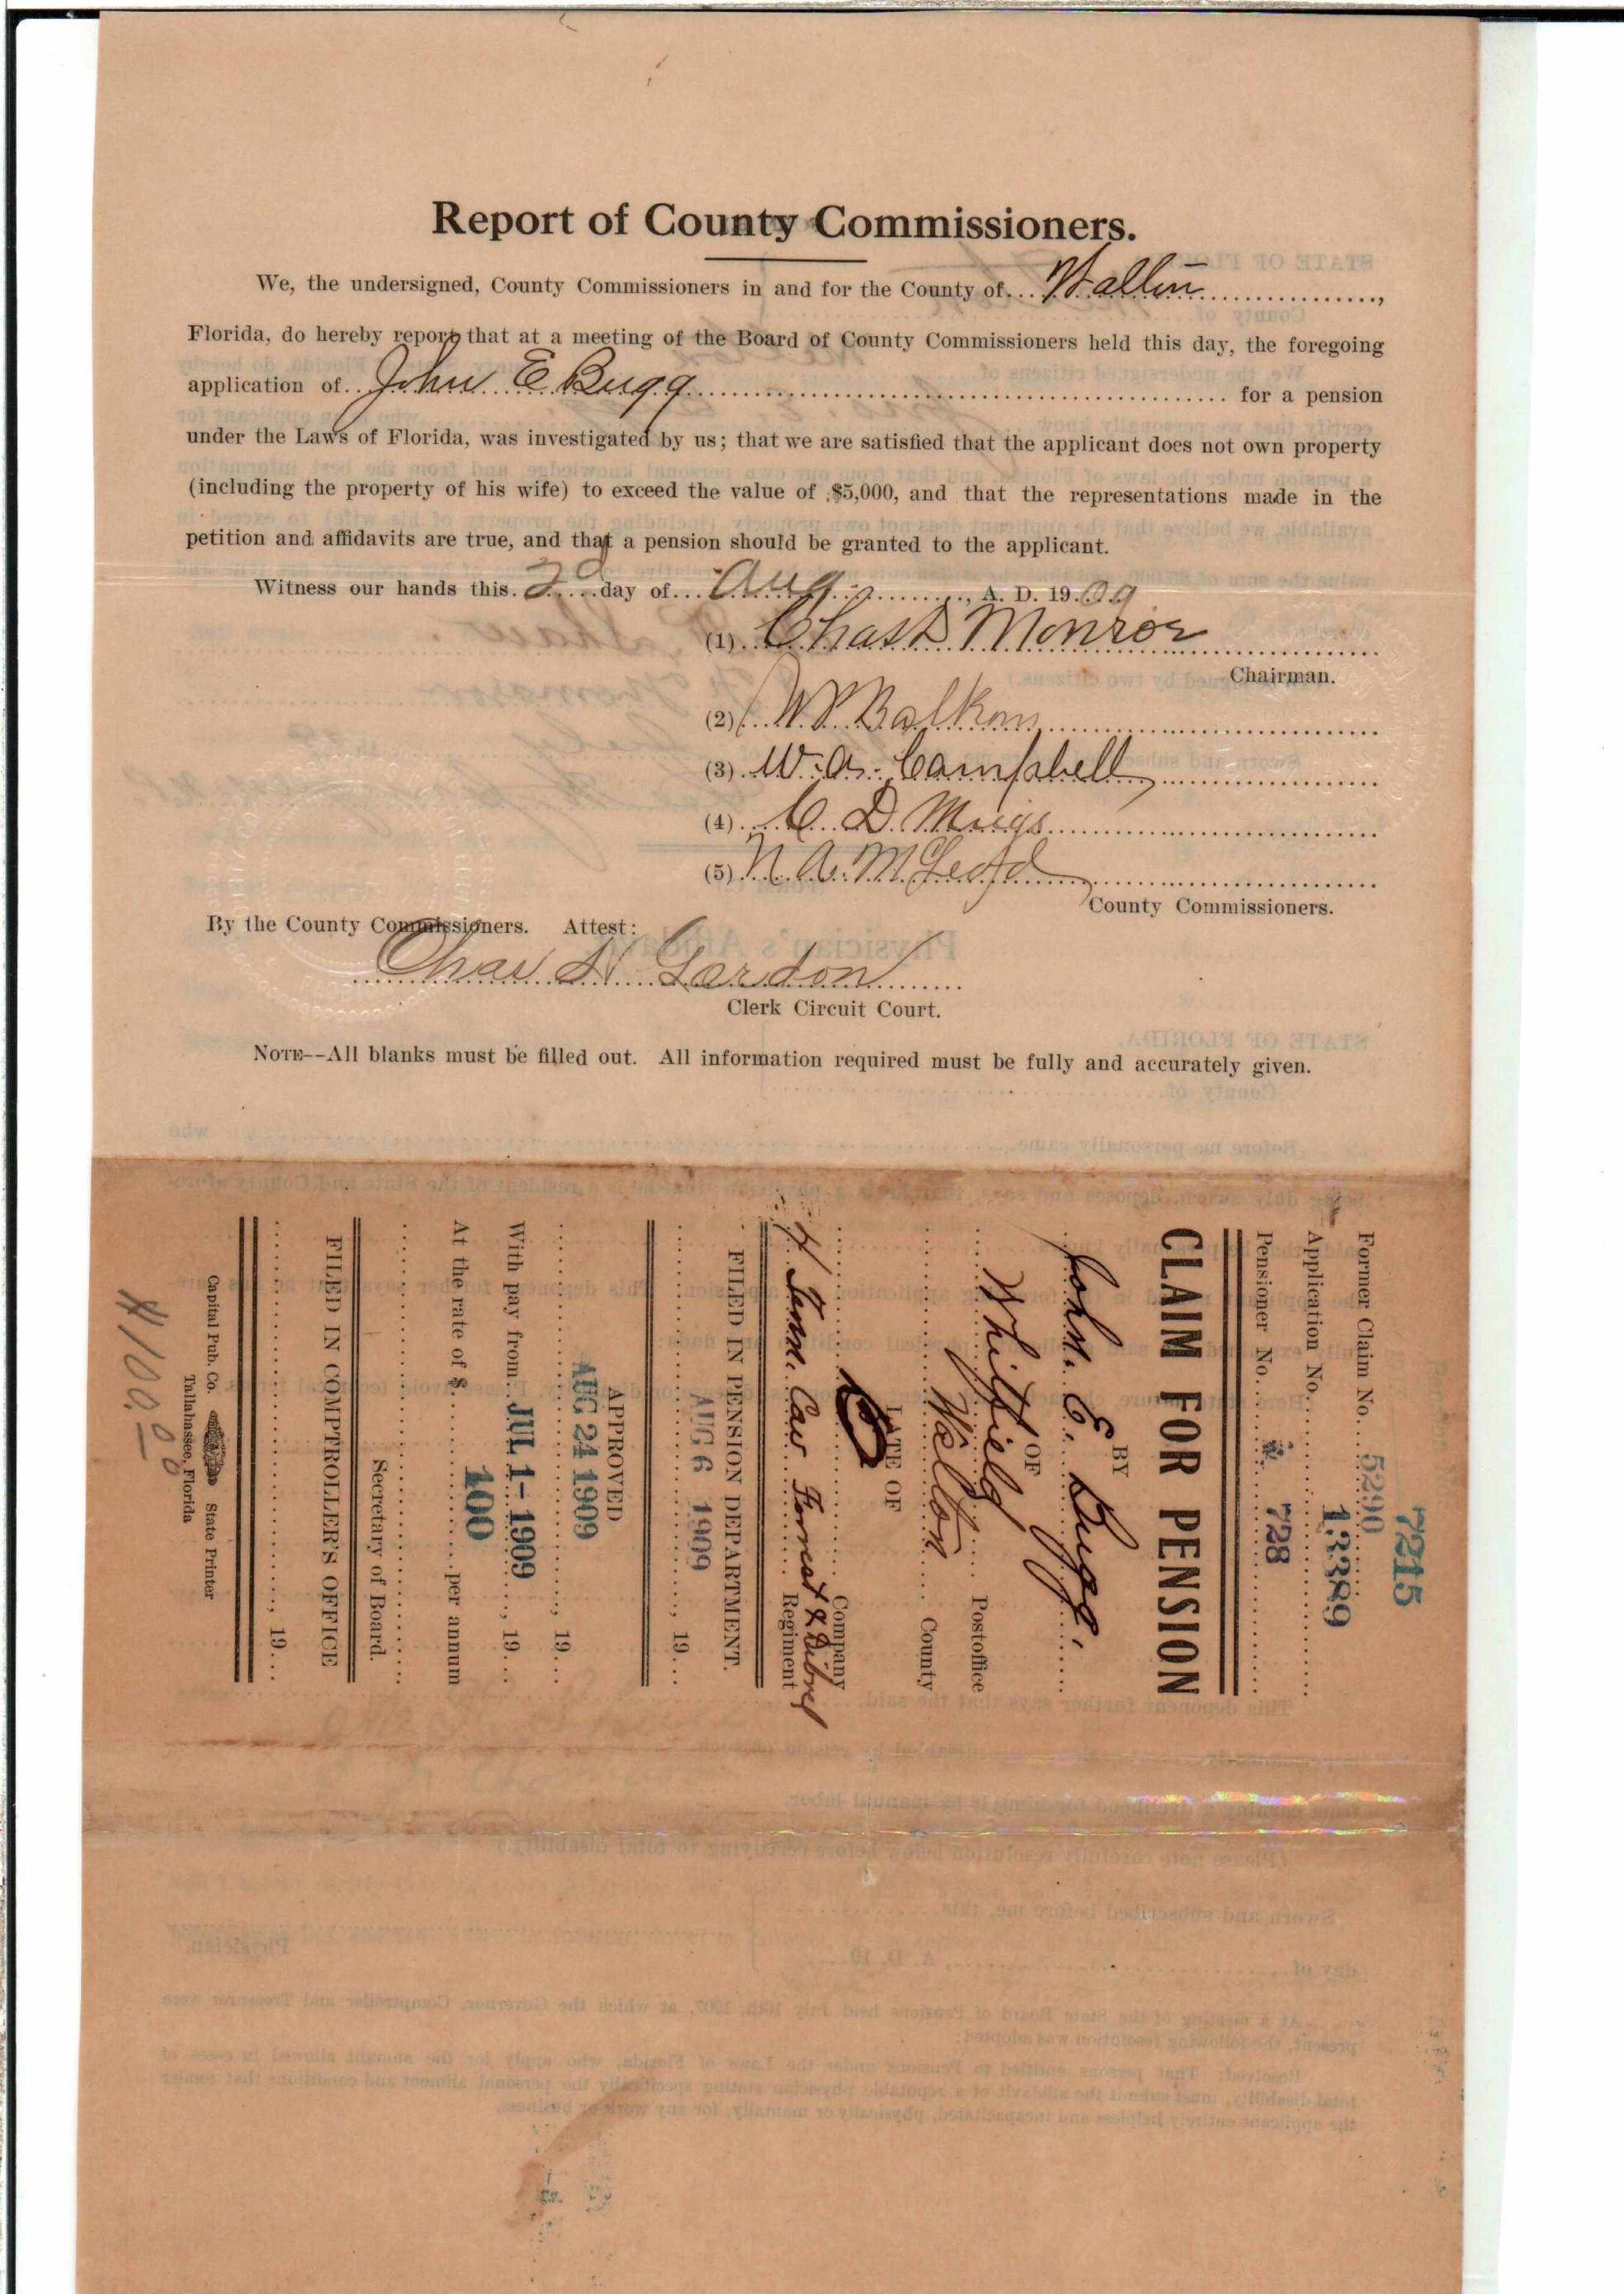 Report of County Commissioners.
We, the undersigned, County Commissioners in and for the County of Walton,
Florida, do hereby report that at a meeting of the Board of County Commissioners held this day, the foregoing
application of John E Bugg for a pension
under the Laws of Florida, was investigated by us; that we are satisfied that the applicant does not own property
(including the property of his wife) to exceed the value of $5,000, and that the representations made in the
petition and affidavits are true, and that a pension should be granted to the applicant.
Witness our hands this 2d day of Aug, A. D. 1909
(1) Chas Monroe
Chairman.
(2) W. Balkom
(3) W. A. Campbell
(4) C D Meigs
(5) N. A. McLeod
County Commissioners.
By the County Commissioners. Attest:
Chas H Gordon
Clerk Circuit Court.
NOTE--All blanks must be filled out. All information required must be fully and accurately given.
7215
Former Claim No. 5290
Application No. 13389
Pensioner No. 728
CLAIM FOR PENSION
BY
John. E. Bugg.
OF
Whitfield Postoffice
Walton County
LATE OF
C Company
4 Tenn. Cav Forrest & Dibrel Regiment
FILED IN PENSION DEPARTMENT.
AUG 6 1909, 19
APPROVED
AUG 24 1909, 19
With pay from JUL 1- 1909, 19
At the rate of $ 100 per annum
Secretary of Board.
FILED IN COMPTROLLER'S OFFICE
, 19
Capital Pub. Co. State Printer
Tallahassee, Florida